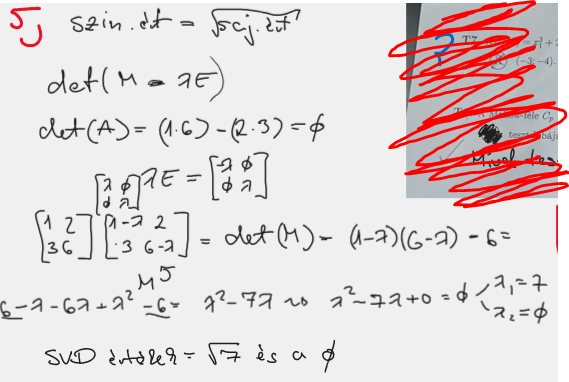 5,
szin. ért = √saj. ért
det(M - λE)
det(A) = (1·6) - (2·3) = ϕ
[λ ϕ; ϕ λ] λE = [-λ ϕ; ϕ λ]
[1 2; 3 6] [1-λ 2; 3 6-λ] = det(M) = (1-λ)(6-λ) - 6 =
6 - λ - 6λ + λ² - 6 = λ² - 7λ ~> λ² - 7λ + 0 = ϕ λ₁ = 7 λ₂ = ϕ
SVD értékek = √7 és a ϕ